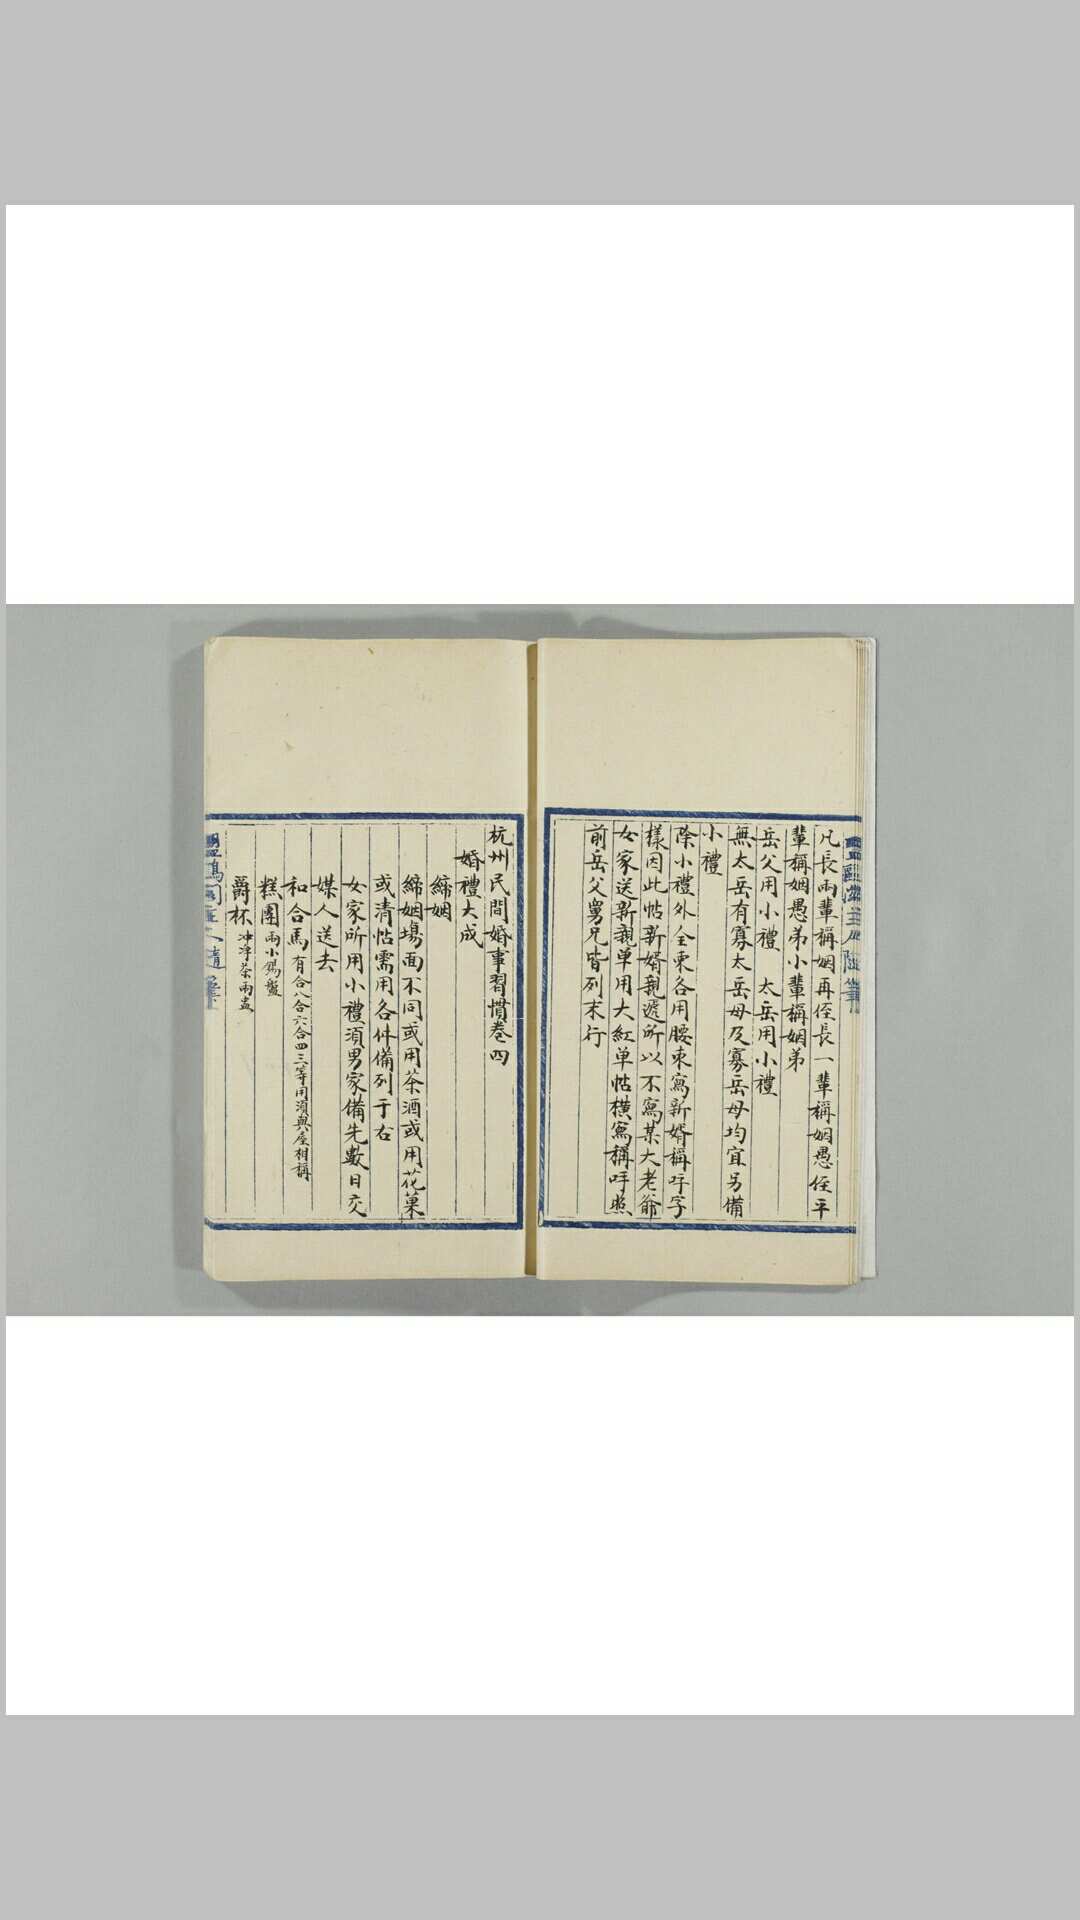 凡長兩輩稱姻再侄長一輩稱姻愚侄平
輩稱姻愚弟小輩稱姻弟
岳父用小禮　太岳用小禮
無太岳有寡太岳母及寡岳母均宜另備
小禮
除小禮外全柬各用腰束寫新婿稱呼字
樣因此帖新婿親遞所以不寫某大老爺
女家送新親单用大紅单帖横寫稱呼照
前岳父舅兄皆列末行
杭州民間婚事習慣卷四
婚禮大成
締姻
締姻塲面不同或用茶酒或用花菓
或清帖需用各件備列于右
女家所用小禮須男家備先數日交
媒人送去
和合馬有合八合六合四三等用須與座相稱
糕團兩小錫盤
爵杯冲凈茶兩盅